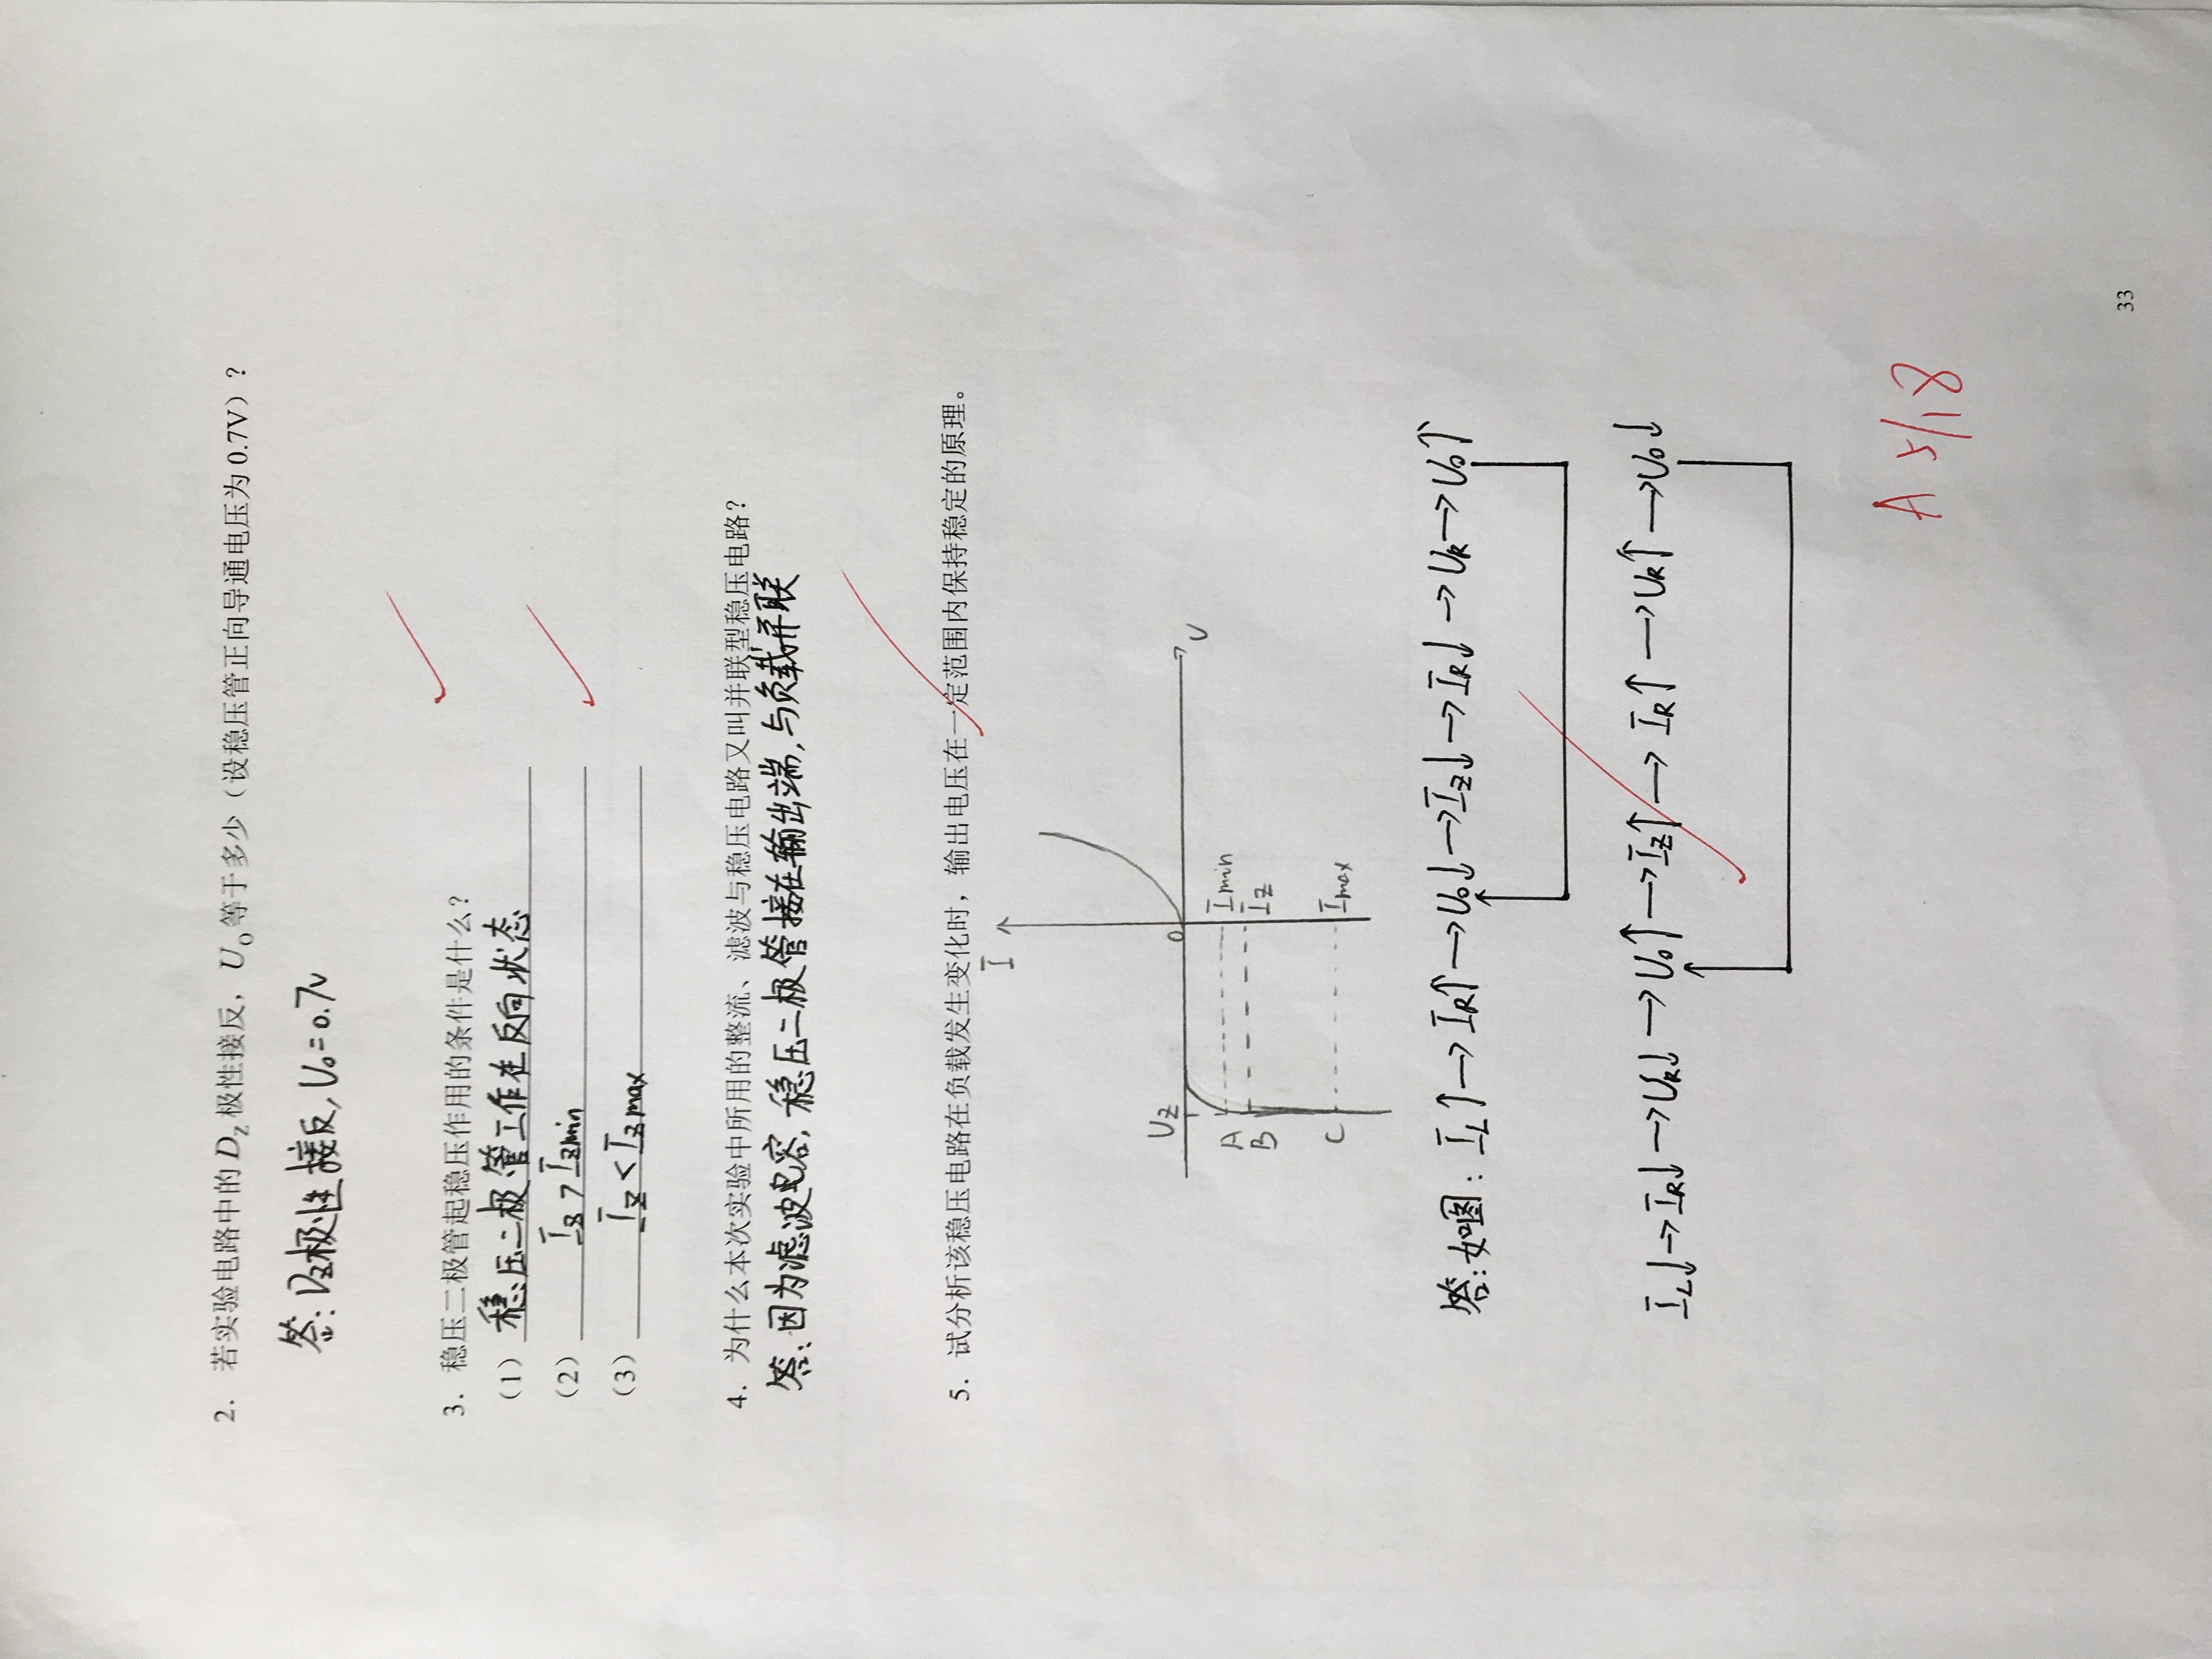 2. 若实验电路中的 DZ 极性接反，UO 等于多少（设稳压管正向导通电压为 0.7V）？
答：DZ极性接反，Uo=0.7V
3. 稳压二极管起稳压作用的条件是什么？
（1）稳压二极管工作在反向状态
（2）IZ > IZmin
（3）IZ < IZmax
4. 为什么本次实验中所用的整流、滤波与稳压电路又叫并联型稳压电路？
答：因为滤波电容，稳压二极管接在输出端，与负载并联
5. 试分析该稳压电路在负载发生变化时，输出电压在一定范围内保持稳定的原理。
I
UZ
0
U
A
Imin
B
IZ
C
Imax
答：如图：IL↑→IR↑→Uo↓→IZ↓→IR↓→UR→Uo↑
IL↓→IR↓→UR↓→Uo↑→IZ↑→IR↑→UR↑→Uo↓
A 5/18
33